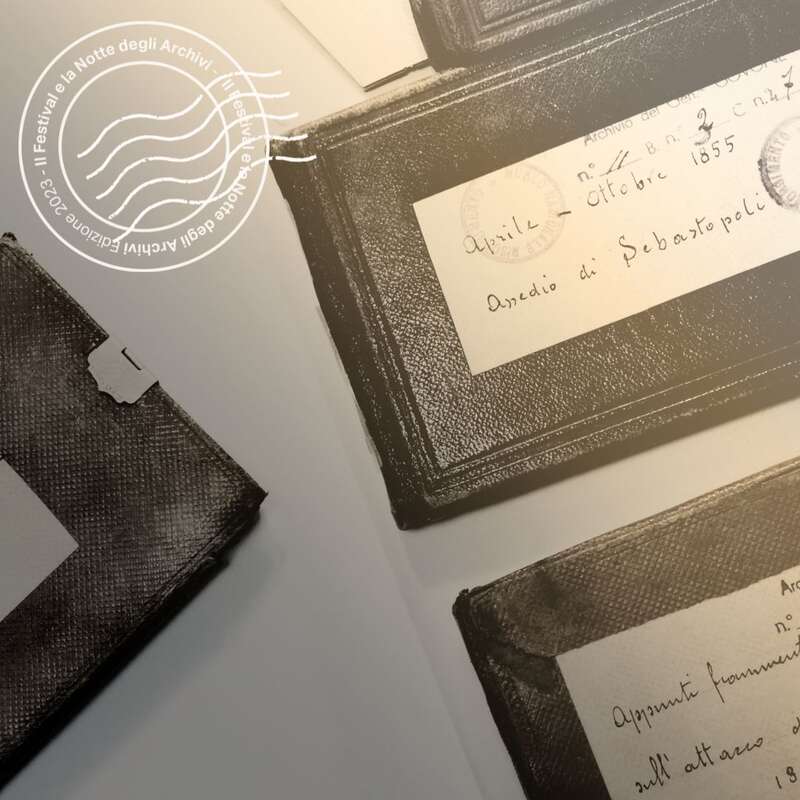 Il Festival e la Notte degli Archivi - Il Festival e la Notte degli Archivi Edizione 2023 -
Archivio del Gen. GOVONE
n.° 11 B. n.° 2 C n. 47
Aprile - Ottobre 1855
Assedio di Sebastopoli
Arc
n.°
Appunti framment
sull' attacco d
18